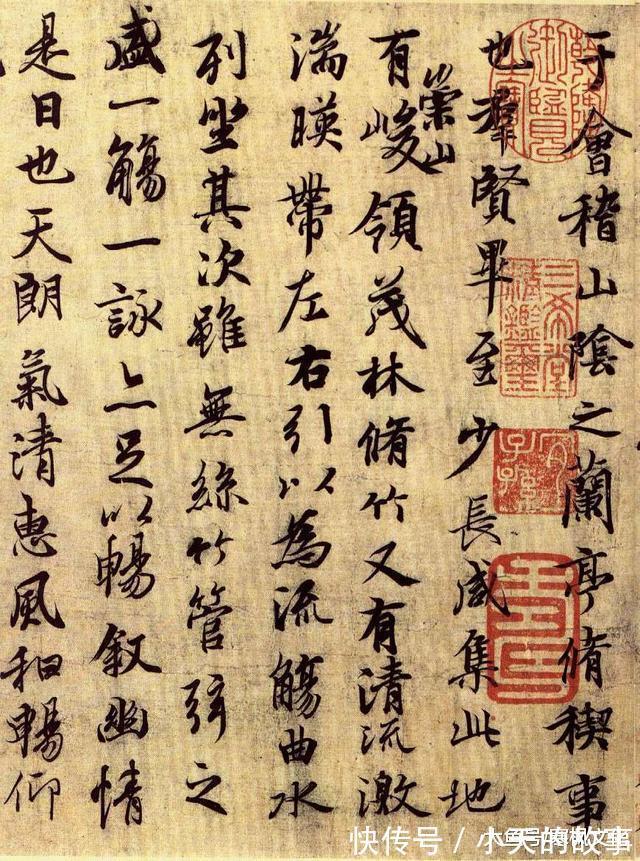 于會稽山陰之蘭亭脩稧事
也羣賢畢至少長咸集此地
有崇山峻領茂林脩竹又有清流激
湍暎帶左右引以為流觴曲水
列坐其次雖無絲竹管弦之
盛一觴一詠亦足以暢敘幽情
是日也天朗氣清惠風和暢仰
三希堂精鑑璽
宜子孫
快传号/小天的故事